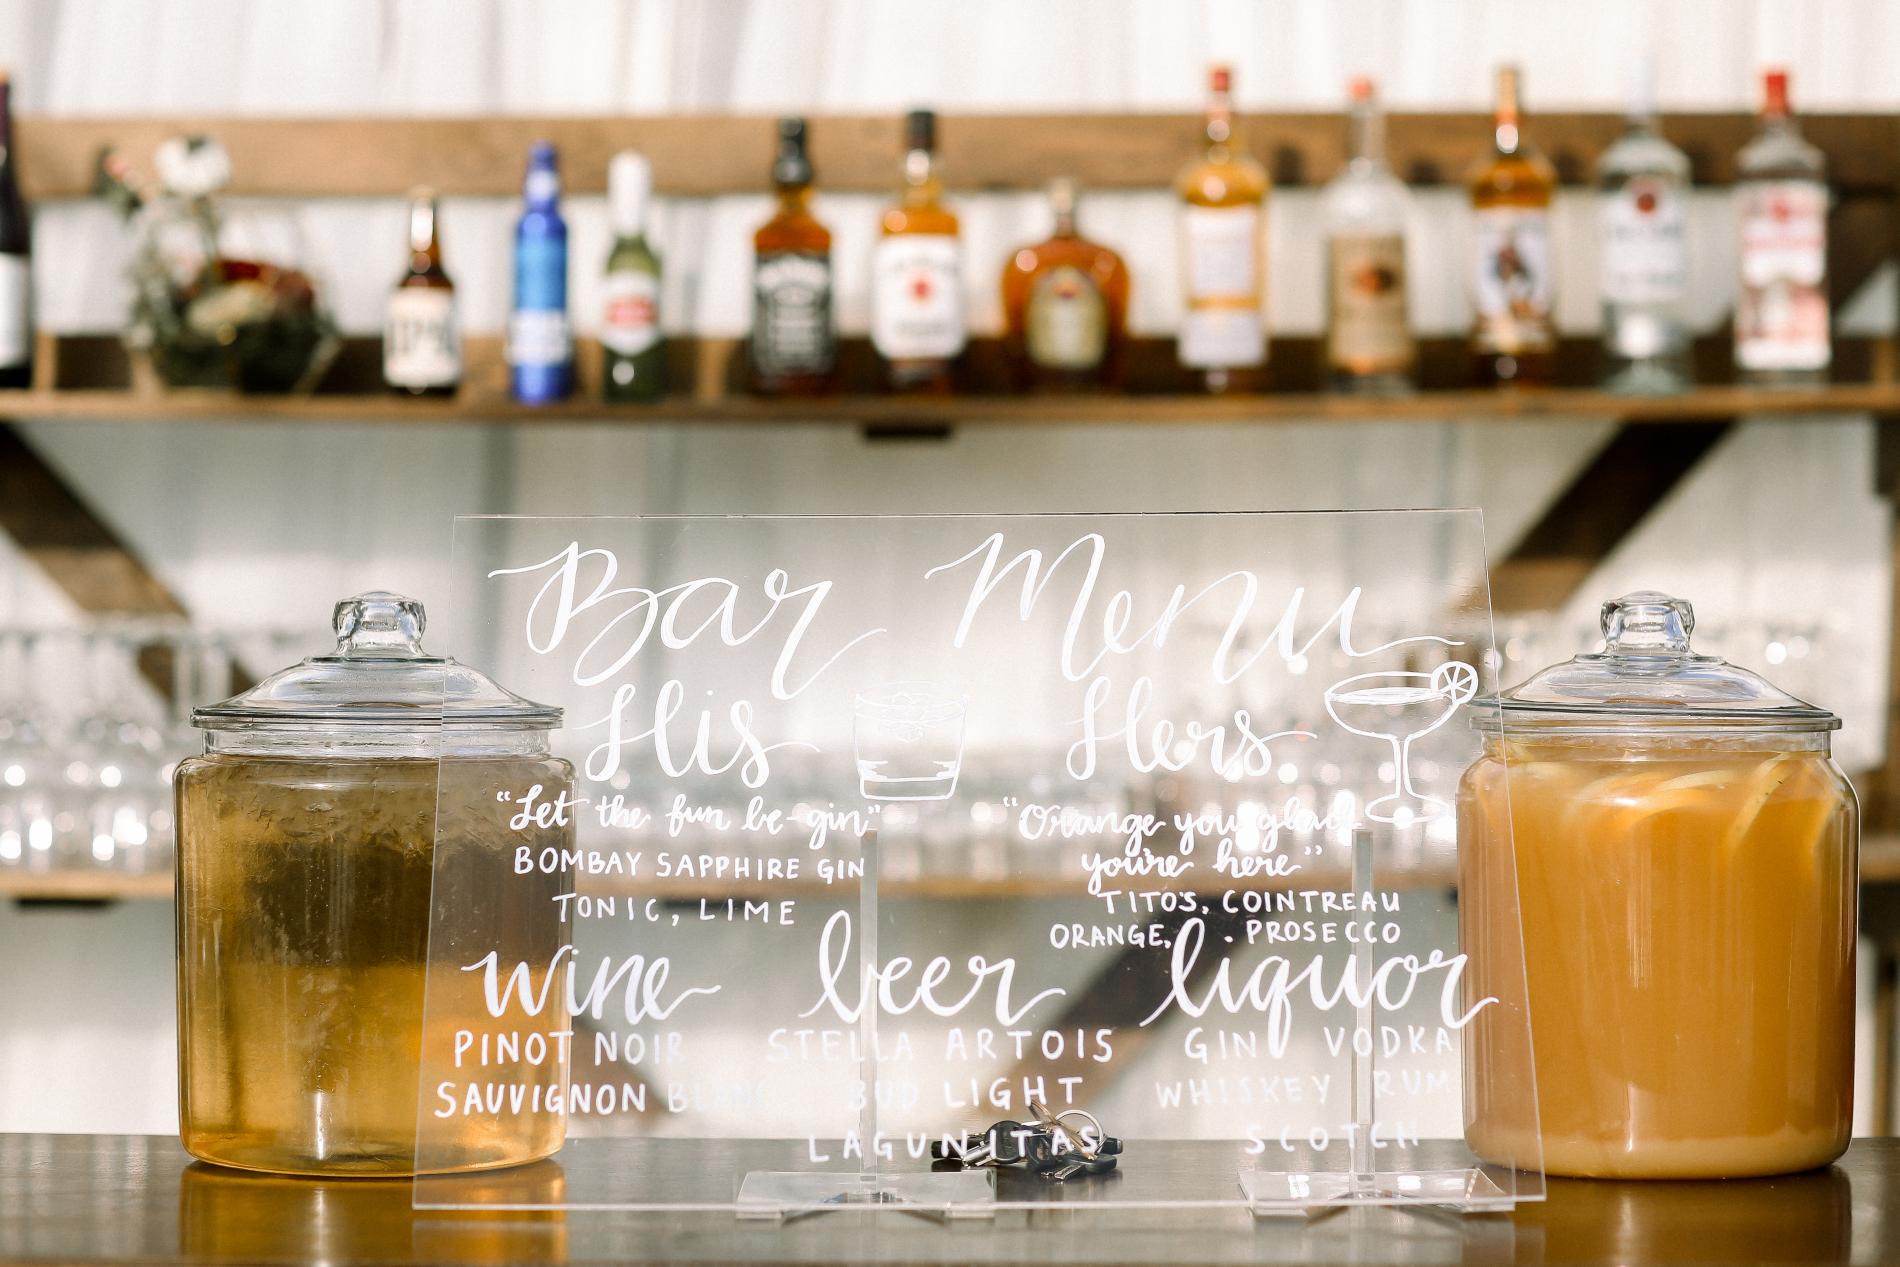 Bar Menu
His
Hers
"Let the fun be-gin"
BOMBAY SAPPHIRE GIN
TONIC, LIME
"Orange you glad
you're here"
TITO'S, COINTREAU
ORANGE, PROSECCO
wine
PINOT NOIR
SAUVIGNON BLANC
beer
STELLA ARTOIS
BUD LIGHT
LAGUNITAS
liquor
GIN VODKA
WHISKEY RUM
SCOTCH
IPA